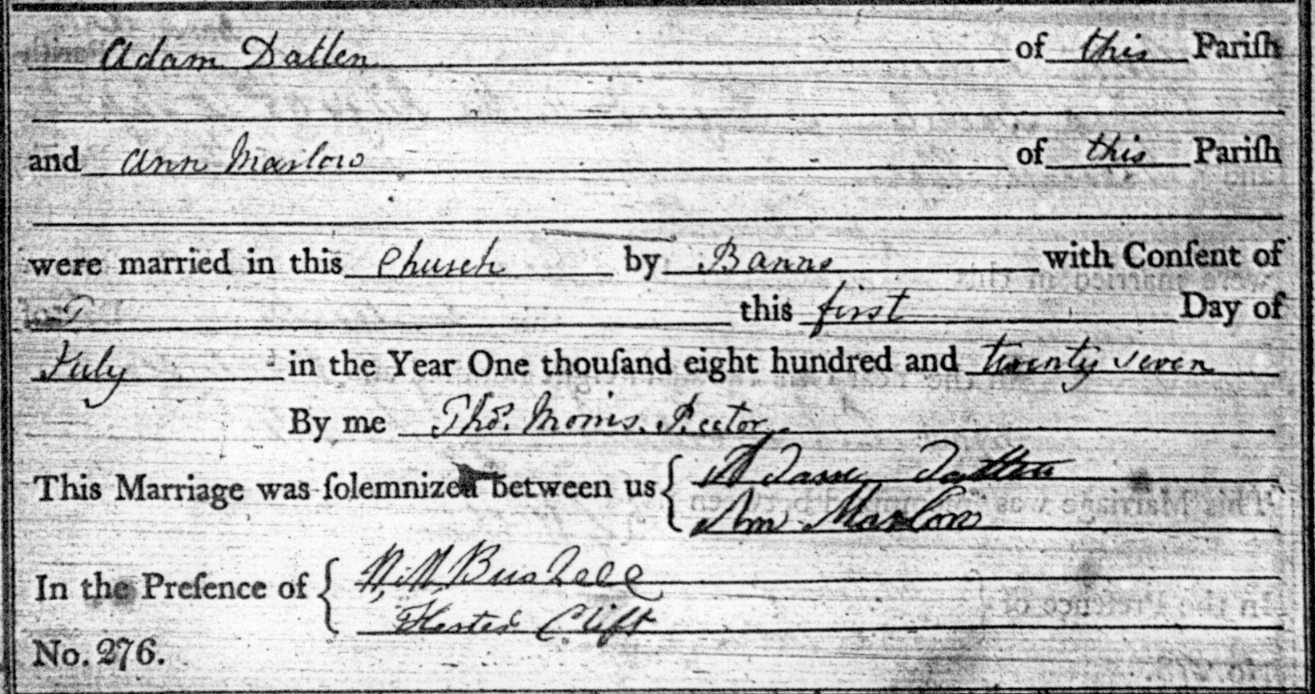 Adam Datten of this Pariſh
and Ann Marlow of this Pariſh
were married in this Church by Banns with Conſent of
this first Day of
July in the Year One thouſand eight hundred and twenty seven
By me Thos. Morris Rector
This Marriage was ſolemnized between us { Adam Datten
Ann Marlow
In the Preſence of { Wm Bushell
Hester Clift
No. 276.